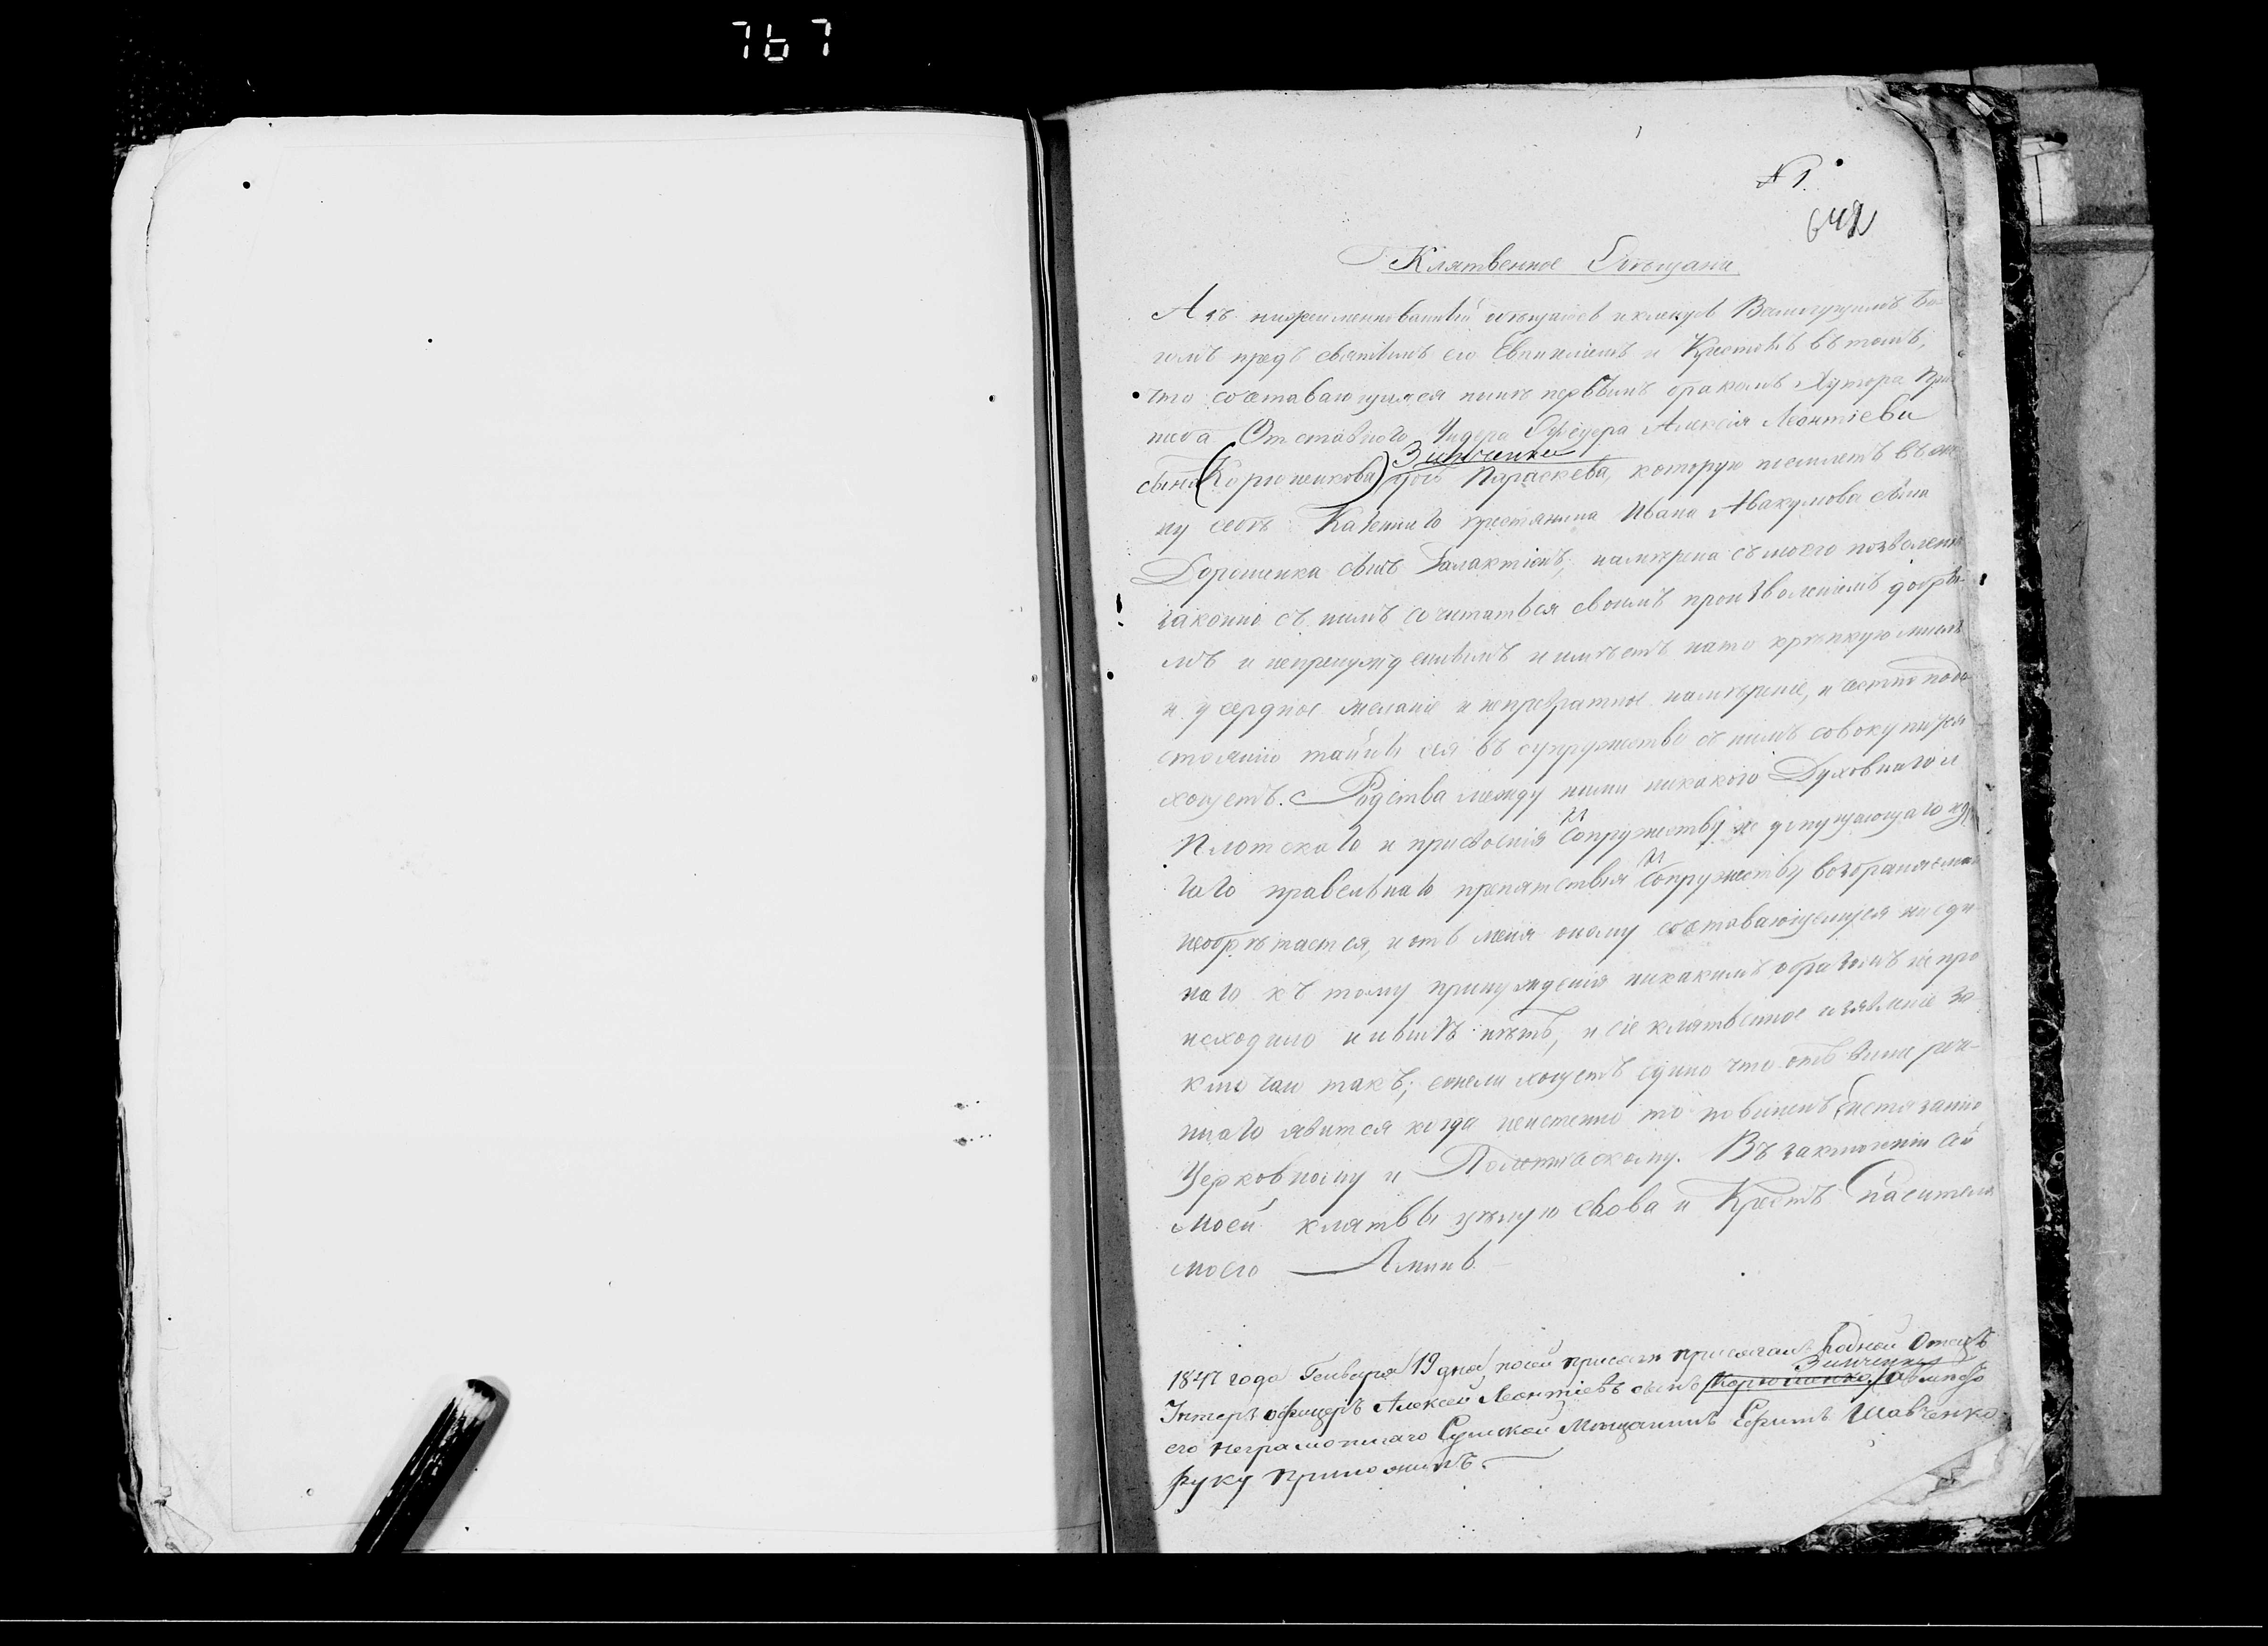 767
№ 1.
649
Клятвенное Обѣщаніе
Азъ нижеименнованный обѣщаюсь и кленусь Всемогущимъ Бо-
гомъ предъ святымъ его Евангеліемъ и Крестомъ въ томъ,
что сочетавающияся нынѣ первымъ бракомъ Хутора
Отставного Ундера Офицера Алексія Леонтіева
сына (Корюненкова) Зинченки дочь Параскева, которую поемлетъ въ же-
ну себѣ Казенный крестянина Ивана Авакумова сына
Дорошенка сынъ Галактіонъ, намѣрена съ моего позволенія
законно съ нимъ сочитаться своимъ произволеніемъ добры-
мъ и непренужденнымъ и имѣетъ на то крѣпкую мысль
и усердное желаніе и непревратное намѣреніе, и честно
стоянію тайны сея въ супружество съ нимъ совокупится
хощетъ. Родства между ними никакого Духовнаго и
Плотскаго и присвоенія сопружеству не допущающаго
гаго правельнаго препятствія сопружеству возбраняема
необрѣтается, и отъ меня оному сочетавающемуся ни еди
наго къ тому принужденія никакимъ образомъ не про
исходило и нынѣ нѣтъ, и сіе клятвенное изявленіе за
ключаю такъ; ежели хощетъ едино что отъ выше рече-
ннаго явится когда неистенно то повиненъ истязанію
Церковному и Политическому. Въ заключеніи сей
моей клятвы цѣлую слова и Крестъ Спасителя
моего Аминь
1847 года Генваря 19 дня, посей присяги присягалъ Родной Отецъ
Унтеръ офицеръ Алексей Леонтіевъ сынъ (Корюненко) Зинченко, а вместо
его неграмотнаго Сумской Мещанинъ Ефимъ Шавченко
руку приложилъ.